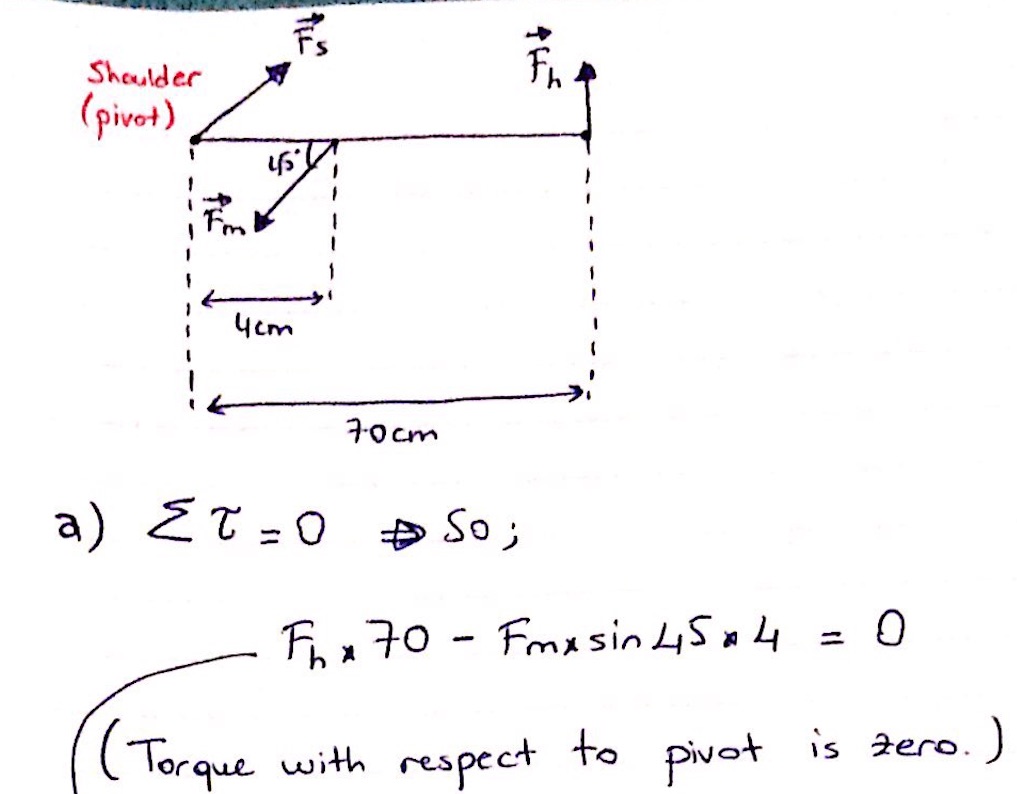 F⃗s
Shoulder
(pivot)
F⃗h
45°
F⃗m
4cm
70cm
a) Στ = 0 ⇒ So;
Fh x 70 - Fm x sin 45 x 4 = 0
(Torque with respect to pivot is zero.)